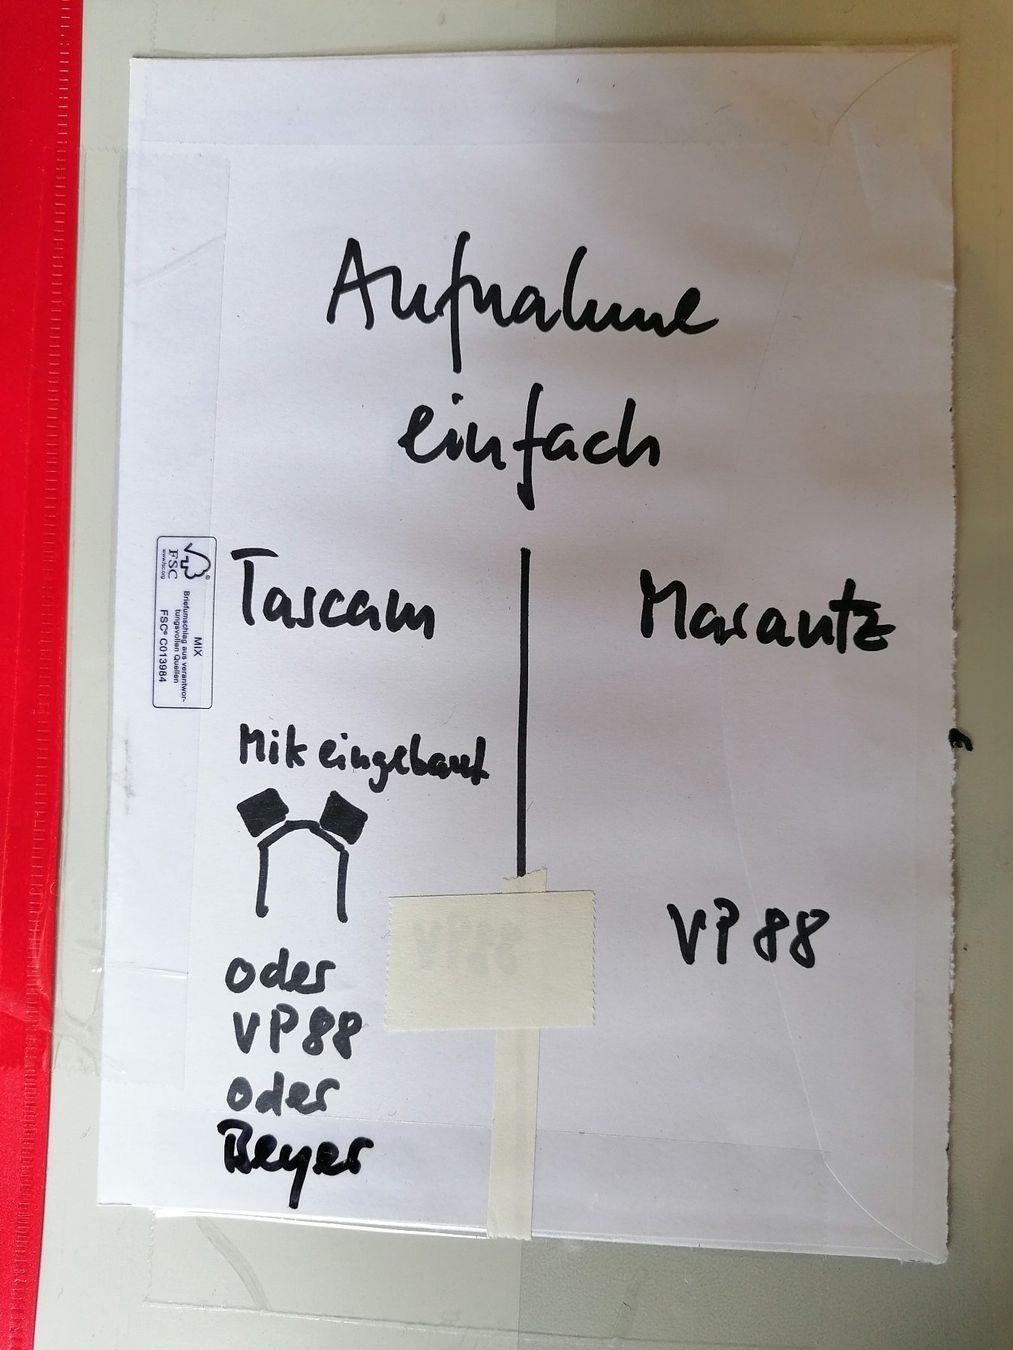 Aufnahme
einfach
Tascam
Marantz
Mik eingebaut
oder
VP88
oder
Beyer
VP 88
FSC
www.fsc.org
MIX
Briefumschlag aus verantwor-
tungsvollen Quellen
FSC® C013984